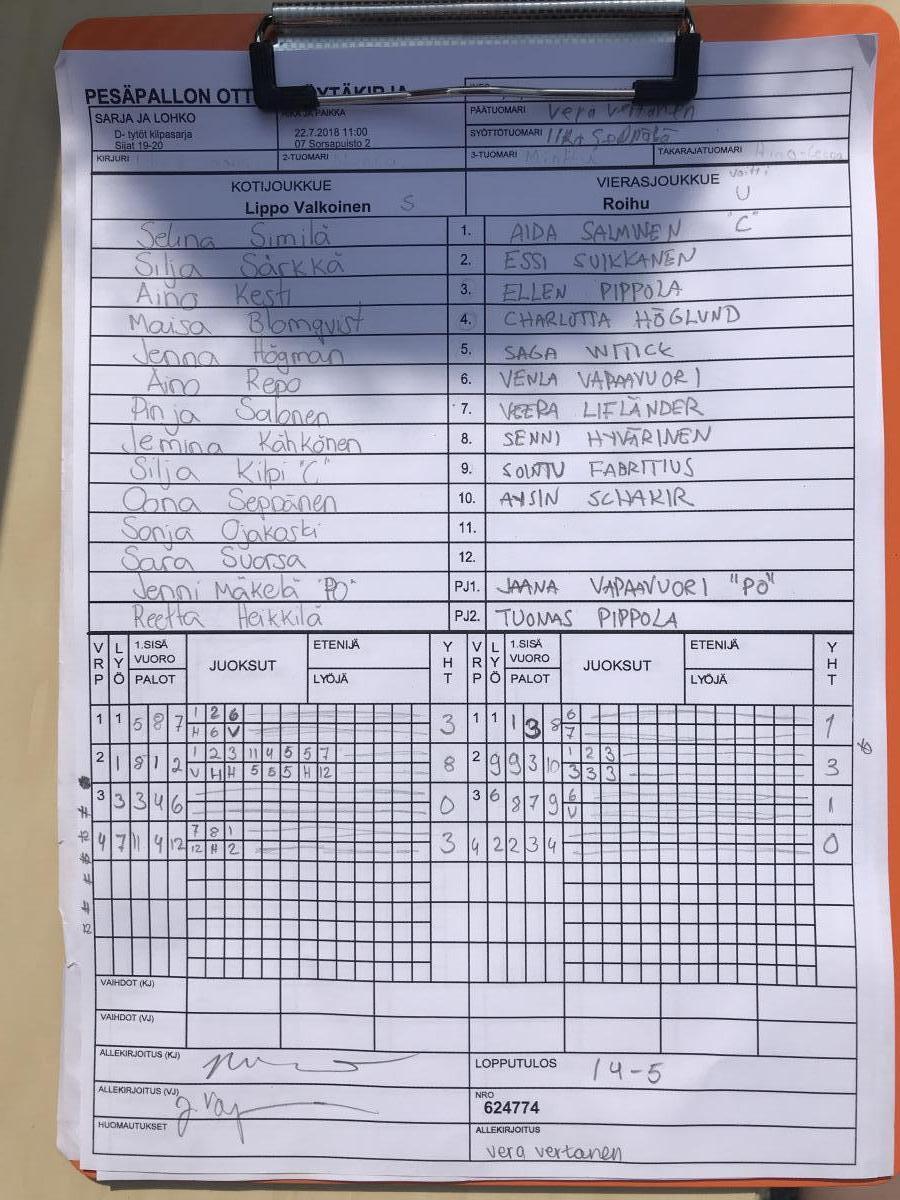 PESÄPALLON
SARJA JA LOHKO
D- tytöt kilpasarja
Sijat 19-20
AIKA JA PAIKKA
22.7.2018 11:00
07 Sorsapuisto 2
PÄÄTUOMARI Vera Vertanen
SYÖTTÖTUOMARI
KIRJURI 2-TUOMARI 3-TUOMARI TAKARAJATUOMARI
KOTIJOUKKUE VIERASJOUKKUE voitti
Lippo Valkoinen S Roihu U
Selina Similä 1. AIDA SALMINEN "C"
Silja Särkkä 2. ESSI SUIKKANEN
Aino Kesti 3. ELLEN PIPPOLA
Maisa Blomqvist 4. CHARLOTTA HÖGLUND
Jenna Högman 5. SAGA WITICK
Aino Repo 6. VENLA VAPAAVUORI
Pinja Salonen 7. VEERA LIFLÄNDER
Jemina Kähkönen 8. SENNI HYVÄRINEN
Silja Kilpi "C" 9. SOINTU FABRITIUS
Oona Seppänen 10. AYSIN SCHAKIR
Sonja Ojakoski 11.
Sara Suorsa 12.
Jenni Mäkelä "PO" PJ1. JAANA VAPAAVUORI "PO"
Reetta Heikkilä PJ2. TUOMAS PIPPOLA
VRP LYÖ 1.SISÄ VUORO PALOT JUOKSUT ETENIJÄ LYÖJÄ YHT VRP LYÖ 1.SISÄ VUORO PALOT JUOKSUT ETENIJÄ LYÖJÄ YHT
1 1 5 8 7 1 2 6 3 1 1 1 3 8 6 1
H 6 V 7
2 1 8 1 2 1 2 3 11 4 5 5 7 8 2 9 9 3 10 1 2 3 3
V H H 5 5 5 H 12 3 3 3
3 3 3 4 6 0 3 6 8 7 9 6 1
V
4 7 11 4 12 7 8 1 3 4 2 2 3 4 0
12 H 2
VAIHDOT (KJ)
VAIHDOT (VJ)
ALLEKIRJOITUS (KJ) LOPPUTULOS 14-5
ALLEKIRJOITUS (VJ) NRO
624774
HUOMAUTUKSET ALLEKIRJOITUS
vera vertanen